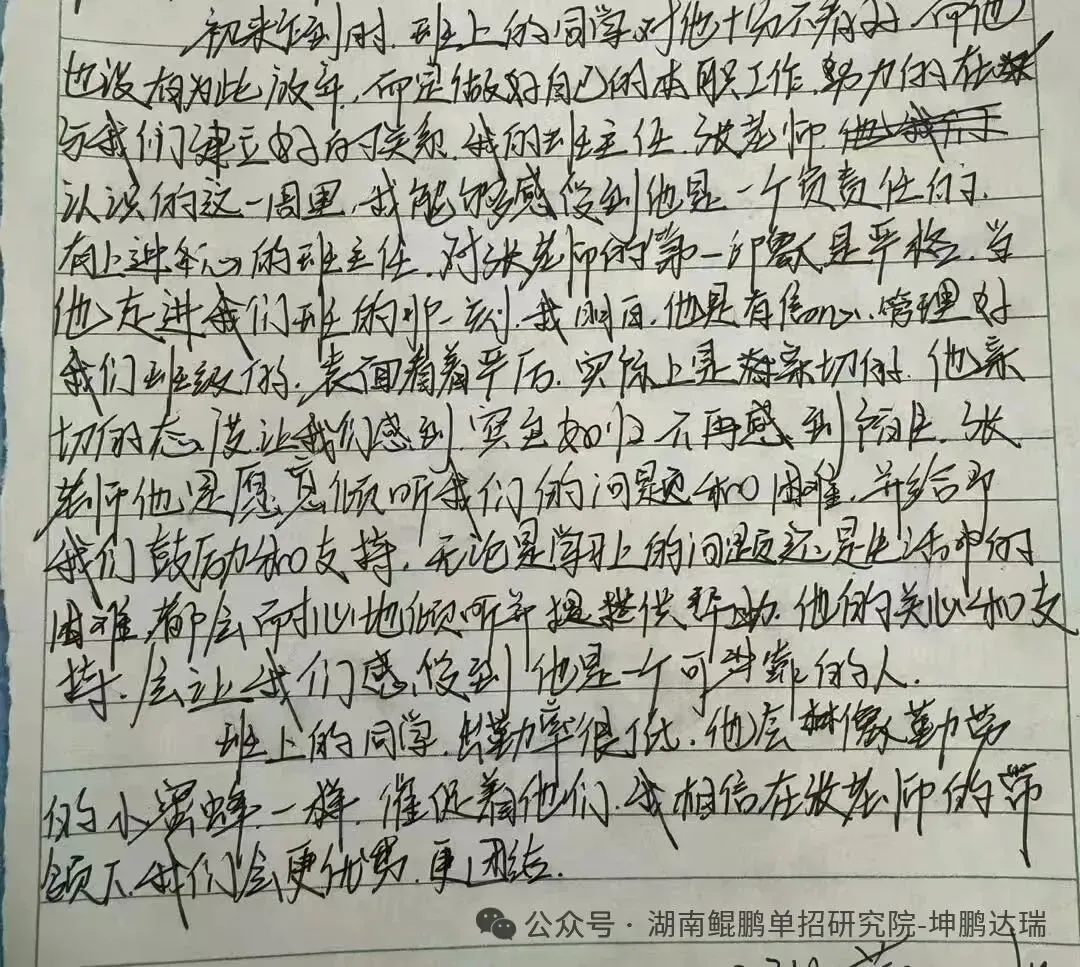 初来乍到时,班上的同学对他十分不看好,而他
也没有为此放弃,而是做好自己的本职工作,努力的在
与我们建立好的关系,我的班主任,张老师,
认识的这一周里,我能够感受到他是一个负责任的,
有上进心的班主任,对张老师的第一印象是严格,当
他走进我们班的那一刻,我明白,他是有信心管理好
我们班级的,表面看着严厉,实际上是亲切的,他亲
切的态度让我们感到宾至如归不再感到陌生,张
老师他是愿意倾听我们的问题和困难,并给印
我们鼓励和支持,无论是学习上的问题还是生活中的
困难,都会耐心地倾听并提供帮助,他的关心和支
持,会让我们感受到他是一个可靠的人.
班上的同学,出勤率很低,他会像勤劳
的小蜜蜂一样,催促着他们,我相信在张老师的带
领下,我们会更优秀,更团结.
公众号·湖南鲲鹏单招研究院-坤鹏达瑞